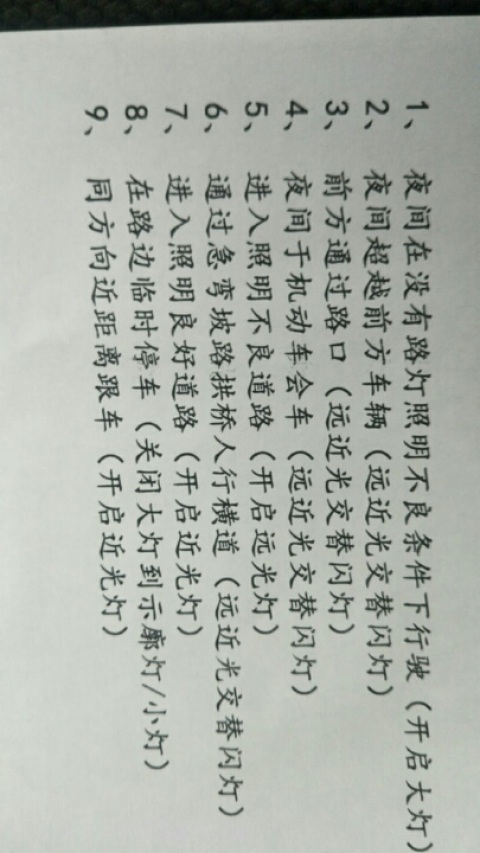 1、夜间在没有路灯照明不良条件下行驶（开启大灯）
2、夜间超越前方车辆（远近光交替闪灯）
3、前方通过路口（远近光交替闪灯）
4、夜间于机动车会车（远近光交替闪灯）
5、进入照明不良道路（开启远光灯）
6、通过急弯坡路拱桥人行横道（远近光交替闪灯）
7、进入照明良好道路（开启近光灯）
8、在路边临时停车（关闭大灯到示廓灯/小灯）
9、同方向近距离跟车（开启近光灯）